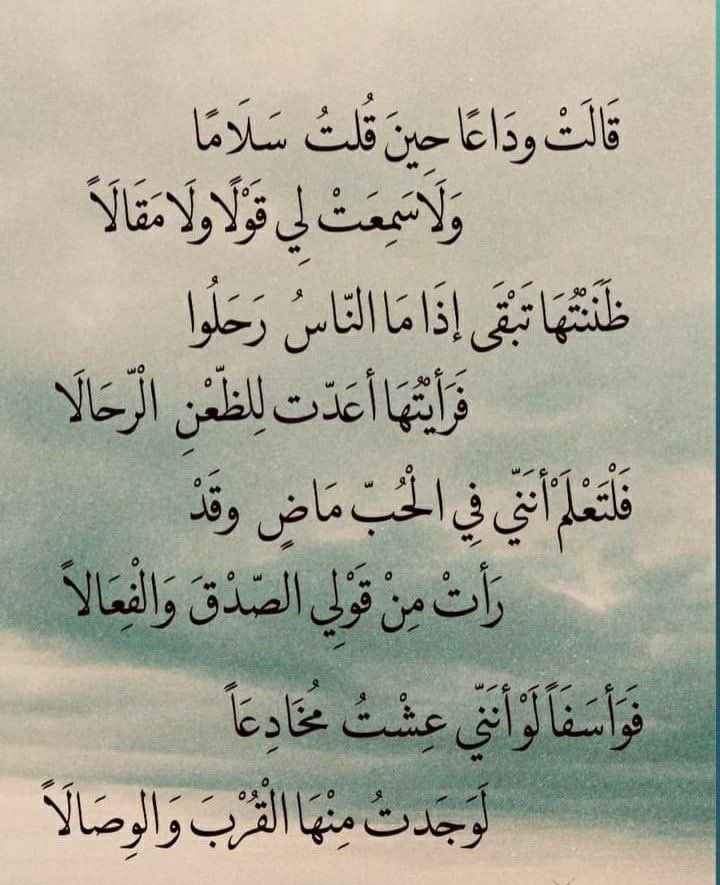 قَالَتْ ودَاعًا حِينَ قُلتُ سَلَامًا
وَلَا سَمِعَتْ لِي قَوْلًا ولَا مَقَالَاً
ظَنَنْتُهَا تَبْقَى إذَا مَا النّاسُ رَحَلُوا
فَرَأيْتُهَا أعَدّت لِلظّعْنِ الْرّحَالَا
فَلْتَعْلَمْ أنَنّي فِي الْحُبّ مَاضٍ وقَدْ
رَأتْ مِنْ قَوْلِي الصّدْقَ وَالْفِعَالاً
فَوَأسَفَاً لَوْ أنَنّي عِشْتُ مُخَادِعَاً
لَوَجَدتُ مِنْهَا الْقُرْبَ وَالوِصَالَاً